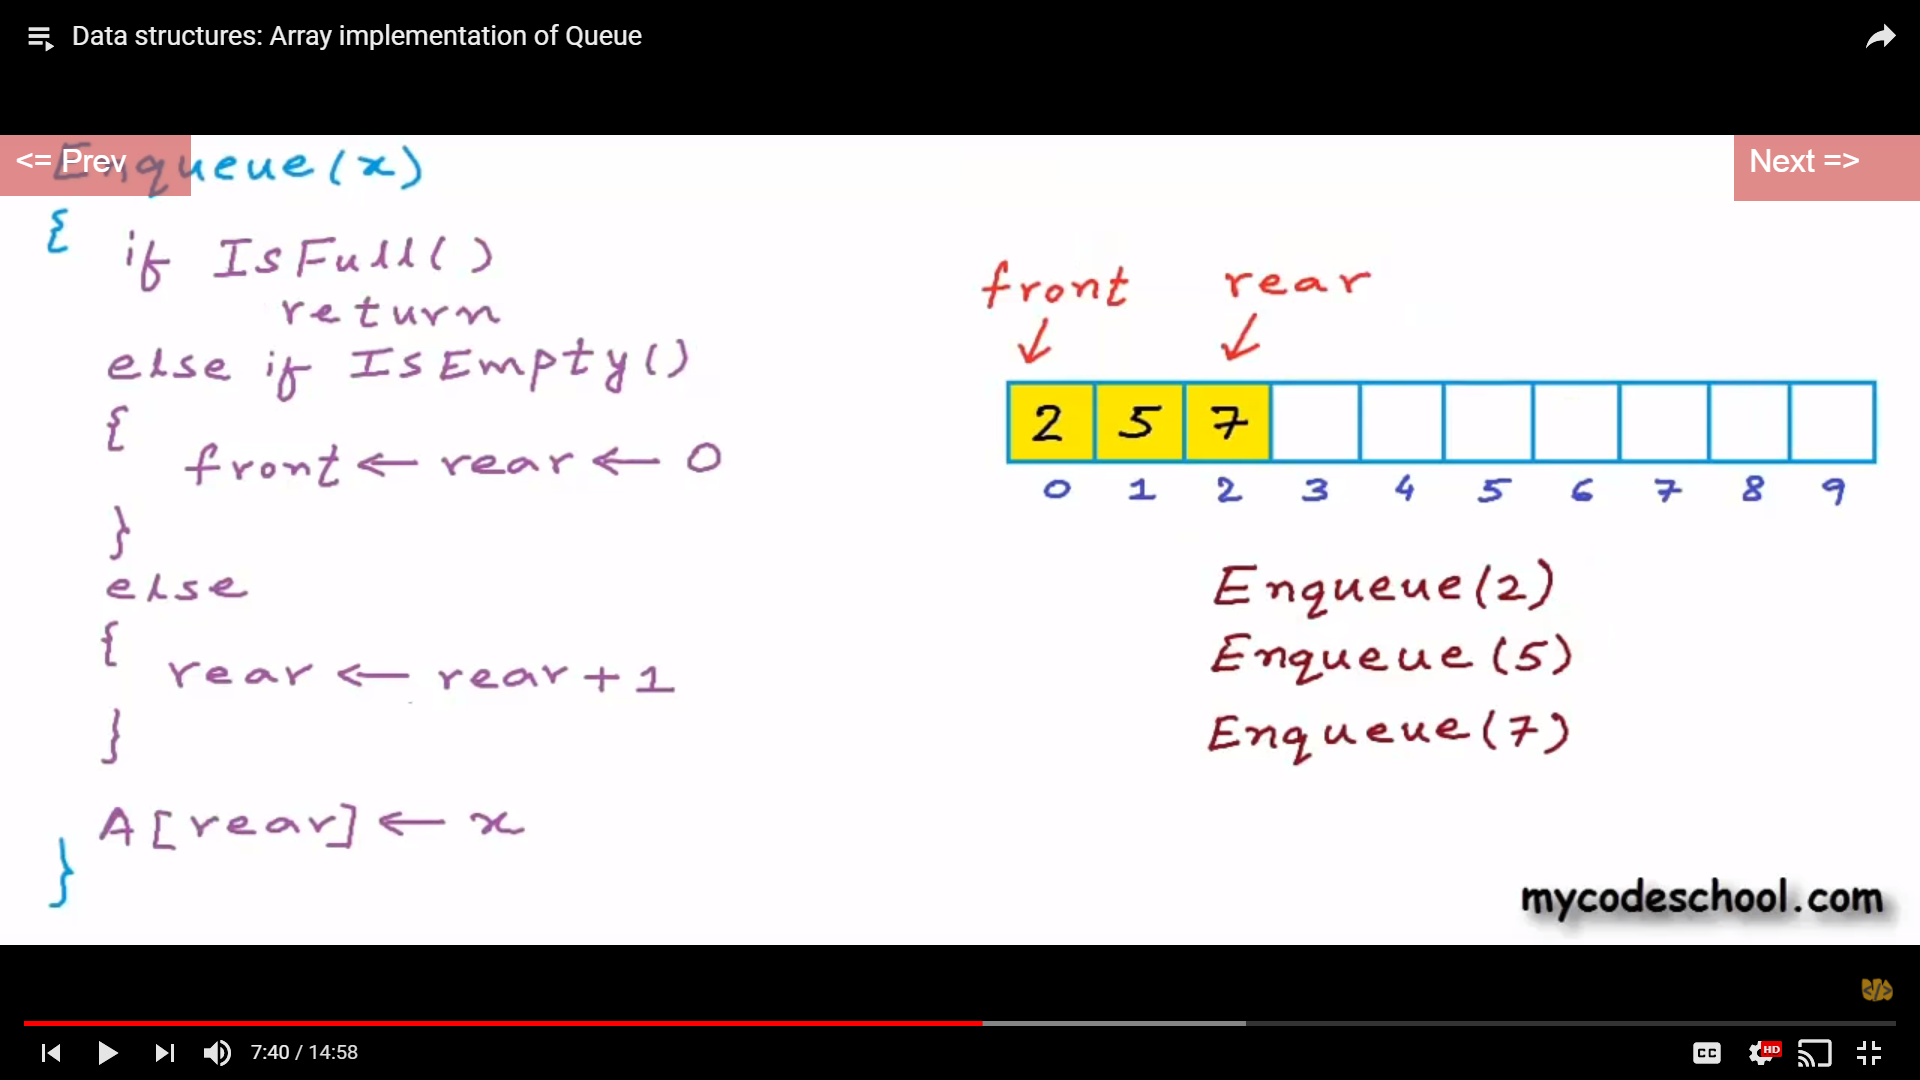 Data structures: Array implementation of Queue
<= Prev
Next =>
Enqueue(x)
{
if IsFull()
return
else if IsEmpty()
{
front ← rear ← 0
}
else
{
rear ← rear + 1
}
A[rear] ← x
}
front rear
2 5 7
0 1 2 3 4 5 6 7 8 9
Enqueue(2)
Enqueue(5)
Enqueue(7)
mycodeschool.com
</>
7:40 / 14:58
CC
HD